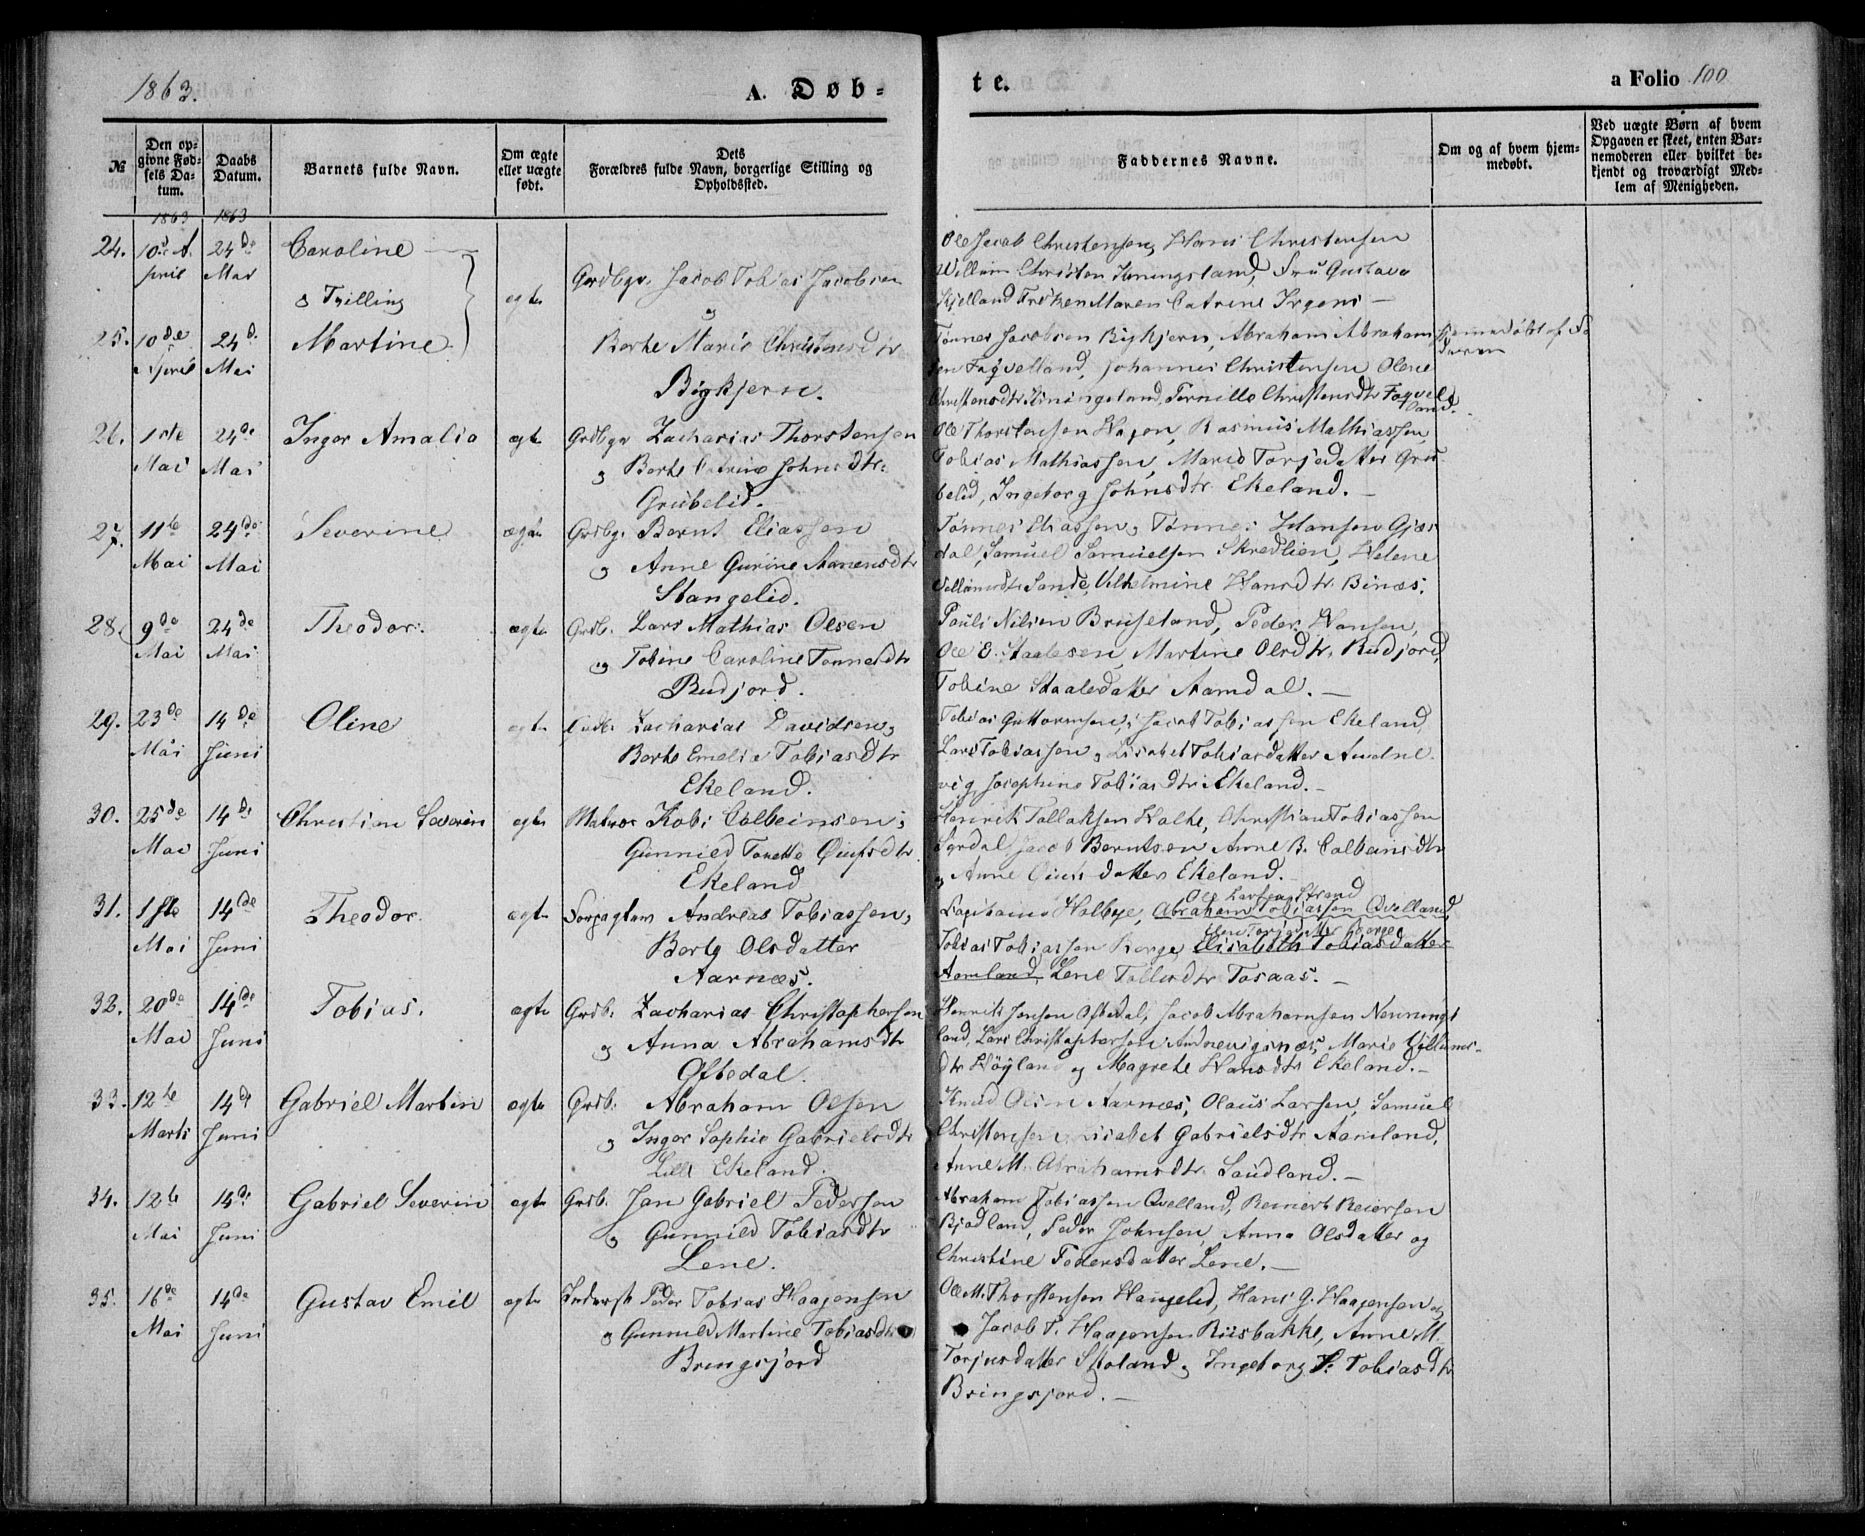 1863.
A. Døb-
te.
a Folio 100
№
Den op-
givne Fød-
sels Da-
tum.
Daabs
Datum.
Barnets fulde Navn.
Om ægte
eller uægte
født.
Dets
Forældres fulde Navn, borgerlige Stilling og
Opholdssted.
Faddernes Navne.
Om og af hvem hjem-
medøbt.
Ved uægte Børn af hvem
Opgaven er skeet, enten Bar-
nemoderen eller hvilket be-
kjendt og troværdigt Med-
lem af Menigheden.
1863 1863
24. 10de A- 24de Caroline
pril Mai
Tvilling ægte Grdbgr. Jacob Tobias Jacobsen
og
25. 10de 24d. Martine Berthe Marie Christensdtr
April Mai
Bigkjern.
Ole Jacob Christensen, Hans Christensen
Christen Kiningsland, Fru Gustava
Kjelland Frøken Maren Catrine Irgens —
Tønnes Jacobsen Bigkjern, Abraham Abraham-
sen Fagvelland, Johannes Christensen Olene
Christensdtr Kiningsland, Pernille Christensdtr Fagvel-
land.
Hjemmedøbt af Fa-
deren
26. 1ste 24de Inger Amalia ægte Grdbgr Zacharias Thorstensen
Mai Mai og Berthe Catrine Johnsdtr.
Grubelid.
Ole Thorstensen Hagen, Rasmus Mathiassen,
Tobias Mathiassen, Maria Torjedatter Gru-
belid, Ingeborg Johnsdtr. Ekeland. —
27. 11te 24de Severine ægte Grdbgr. Bernt Eliassen
Mai Mai og Anne Gurine Mariensdtr
Stangelid.
Tønnes Eliassen, Tønnes Hansen Gjæs-
dal, Samuel Samuelsen Skredlien, Helene
Sande, Vilhelmine Hansdtr. Binæs.
28. 9de 24de Theodor. ægte Grdb. Lars Mathias Olsen
Mai Mai og Tobine Caroline Tønnesdtr
Rudjord.
Pauli Nilsen Bruseland, Peder Hansen,
Ole E. Staalesen, Martine Olsdtr. Rudjord,
Tobine Staalesdatter Aamdal. —
29. 23de 14de Oline ægte Grdb. Zacharias Davidsen og
Mai Juni Berthe Emelie Tobiasdtr
Ekeland.
Tobias Guttormsen, Jacob Tobiassen Ekeland,
Lars Tobiassen, Lisabet Tobiasdatter Andne-
vig, Josephine Tobiasdtr Ekeland. —
30. 25de 14de Christian Severin ægte Matros Kobi Colbeinsen og
Mai Juni Gunnild Tonette Øiufsdtr.
Ekeland
Henrik Tallaksen Halke, Christian Tobiassen
Sørdal, Jacob Berntsen, Anne B. Colbeinsdtr
og Anne Øiufsdatter Ekeland. —
31. 1ste 14de Theodor. ægte Andreas Tobiassen og
Mai Juni Berte Olsdatter
Aarnæs.
Ole Larsen Strand
Holbye, Abraham Tobiassen Qvelland,
Tobias Tobiassen Berge, Elisabeth Tobiasdatter
Aamland, Lene Tollersdtr. Tosaas. —
32. 20de 14de Tobias. ægte Grdb. Zacharias Christophersen
Mai Juni og Anna Abrahamsdtr
Oftedal.
Henrik Jensen Oftedal, Jacob Abrahamsen Nenningsland,
Lars Christophersen Andnevigsnæs, Marie Villums-
dtr Høyland og Magrethe Hansdtr Ekeland. —
33. 12te 14de Gabriel Martin ægte Grdb. Abraham Olsen
Marts Juni og Inger Sophie Gabrielsdtr
Lille Ekeland.
Knud Olsen Aarnæs, Olaus Larsen, Samuel
Christensen, Lisabet Gabrielsdtr. Aamland,
Anne M. Abrahamsdtr. Saudland. —
34. 12te 14de Gabriel Severin ægte Grdb. Jan Gabriel Pedersen
Mai Juni og Gunnild Tobiasdtr
Lene.
Abraham Tobiassen Qvelland, Reinert Reiersen
Bjodland, Peder Johnsen, Anna Olsdatter og
Christine Pedersdatter Lene. —
35. 16de 14de Gustav Emil ægte Inderst Peder Tobias Haagensen
Mai Juni og Gunnild Martine Tobiasdtr
Bringsjord
Ole M. Thorstensen Haugelid, Hans G. Haagensen og
Jacob T. Haagensen Riisbakke, Anne M.
Torjusdatter Skoland, Ingeborg S. Tobiasdtr
Bringsjord. —